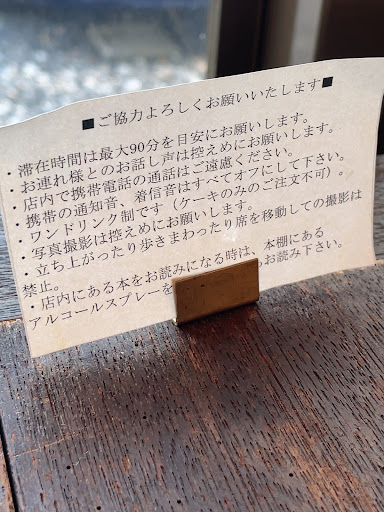 ■ご協力よろしくお願いいたします■
・滞在時間は最大90分を目安にお願いします。
・お連れ様とのお話し声は控えめにお願いします。
・店内で携帯電話の通話はご遠慮ください。
・携帯の通知音、着信音はすべてオフにして下さい。
・ワンドリンク制です（ケーキのみのご注文不可）。
・写真撮影は控えめにお願いします。
・立ち上がったり歩きまわったり席を移動しての撮影は
禁止。
・店内にある本をお読みになる時は、本棚にある
アルコールスプレーを お読み下さい。